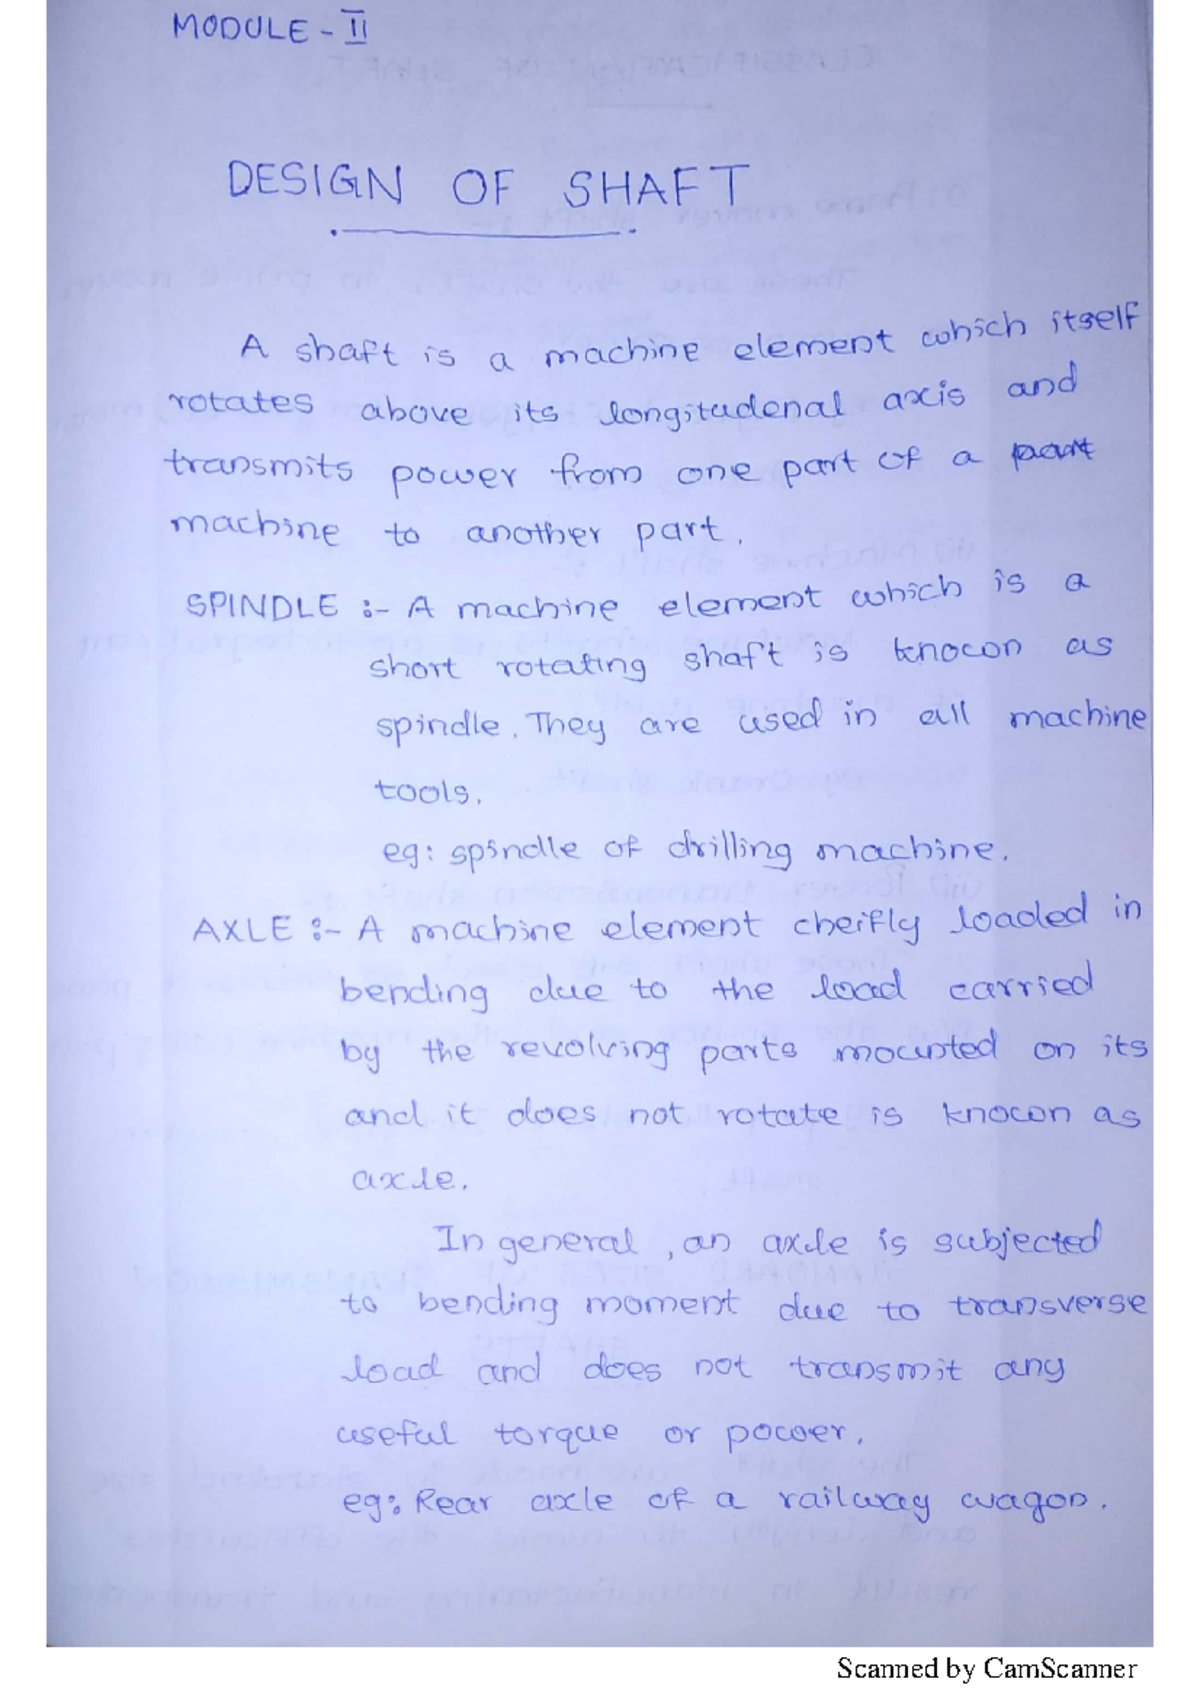 MODULE - II
DESIGN OF SHAFT
A shaft is a machine element which itself
rotates above its longitudenal axis and
transmits power from one part of a part
machine to another part.
SPINDLE :- A machine element which is a
short rotating shaft is known as
spindle. They are used in all machine
tools.
eg: spindle of drilling machine.
AXLE :- A machine element cheifly loaded in
bending due to the load carried
by the revolving parts mounted on its
and it does not rotate is known as
axle.
In general, an axle is subjected
to bending moment due to transverse
load and does not transmit any
useful torque or power.
eg: Rear axle of a railway wagon.
Scanned by CamScanner